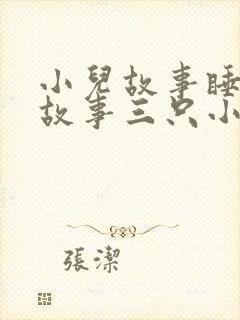 小兒故事睡
故事三只小
張潔